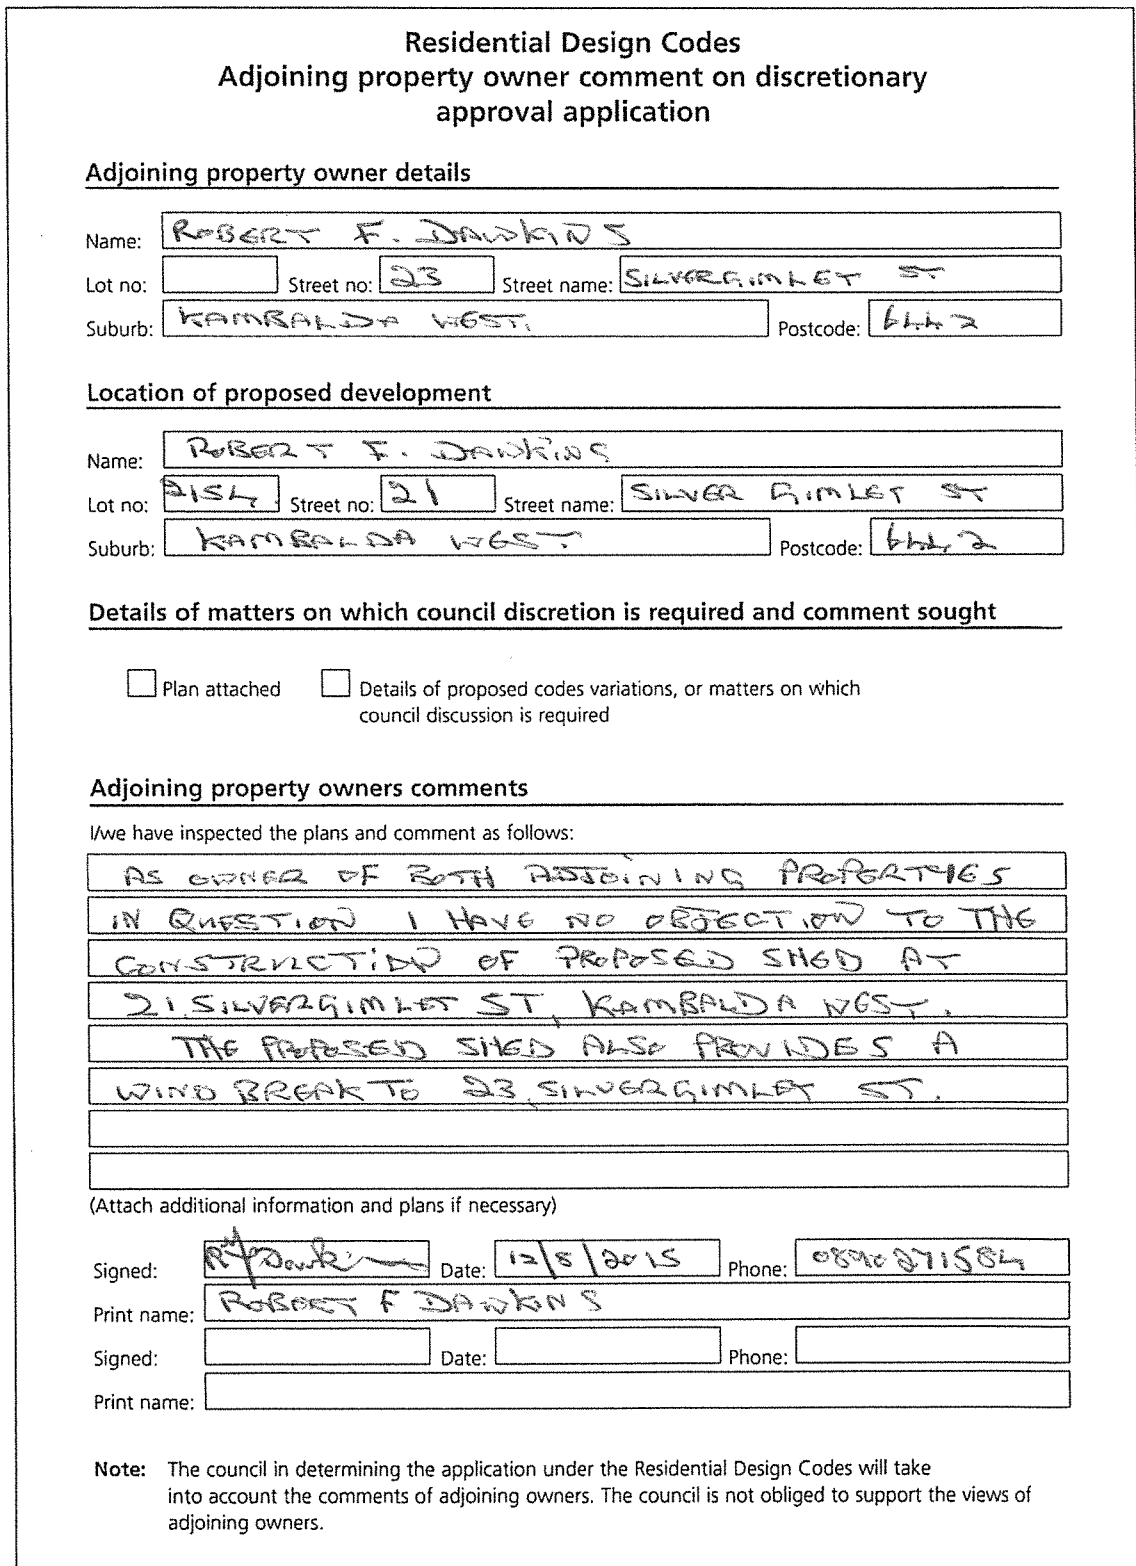 Residential Design Codes
Adjoining property owner comment on discretionary
approval application
Adjoining property owner details
Name: ROBERT F. DAWKINS
Lot no: Street no: 23 Street name: SILVERGIMLET ST
Suburb: KAMBALDA WEST. Postcode: 6442
Location of proposed development
Name: ROBERT F. DAWKINS
Lot no: 2154 Street no: 21 Street name: SILVER GIMLET ST
Suburb: KAMBALDA WEST Postcode: 6442
Details of matters on which council discretion is required and comment sought
Plan attached Details of proposed codes variations, or matters on which
council discussion is required
Adjoining property owners comments
I/we have inspected the plans and comment as follows:
AS OWNER OF BOTH ADJOINING PROPERTIES
IN QUESTION I HAVE NO OBJECTION TO THE
CONSTRUCTION OF PROPOSED SHED AT
21 SILVERGIMLET ST, KAMBALDA WEST.
THE PROPOSED SHED ALSO PROVIDES A
WIND BREAK TO 23 SILVERGIMLET ST.
(Attach additional information and plans if necessary)
Signed: Date: 12/8/2015 Phone: 0890271584
Print name: ROBERT F DAWKINS
Signed: Date: Phone:
Print name:
Note: The council in determining the application under the Residential Design Codes will take
into account the comments of adjoining owners. The council is not obliged to support the views of
adjoining owners.